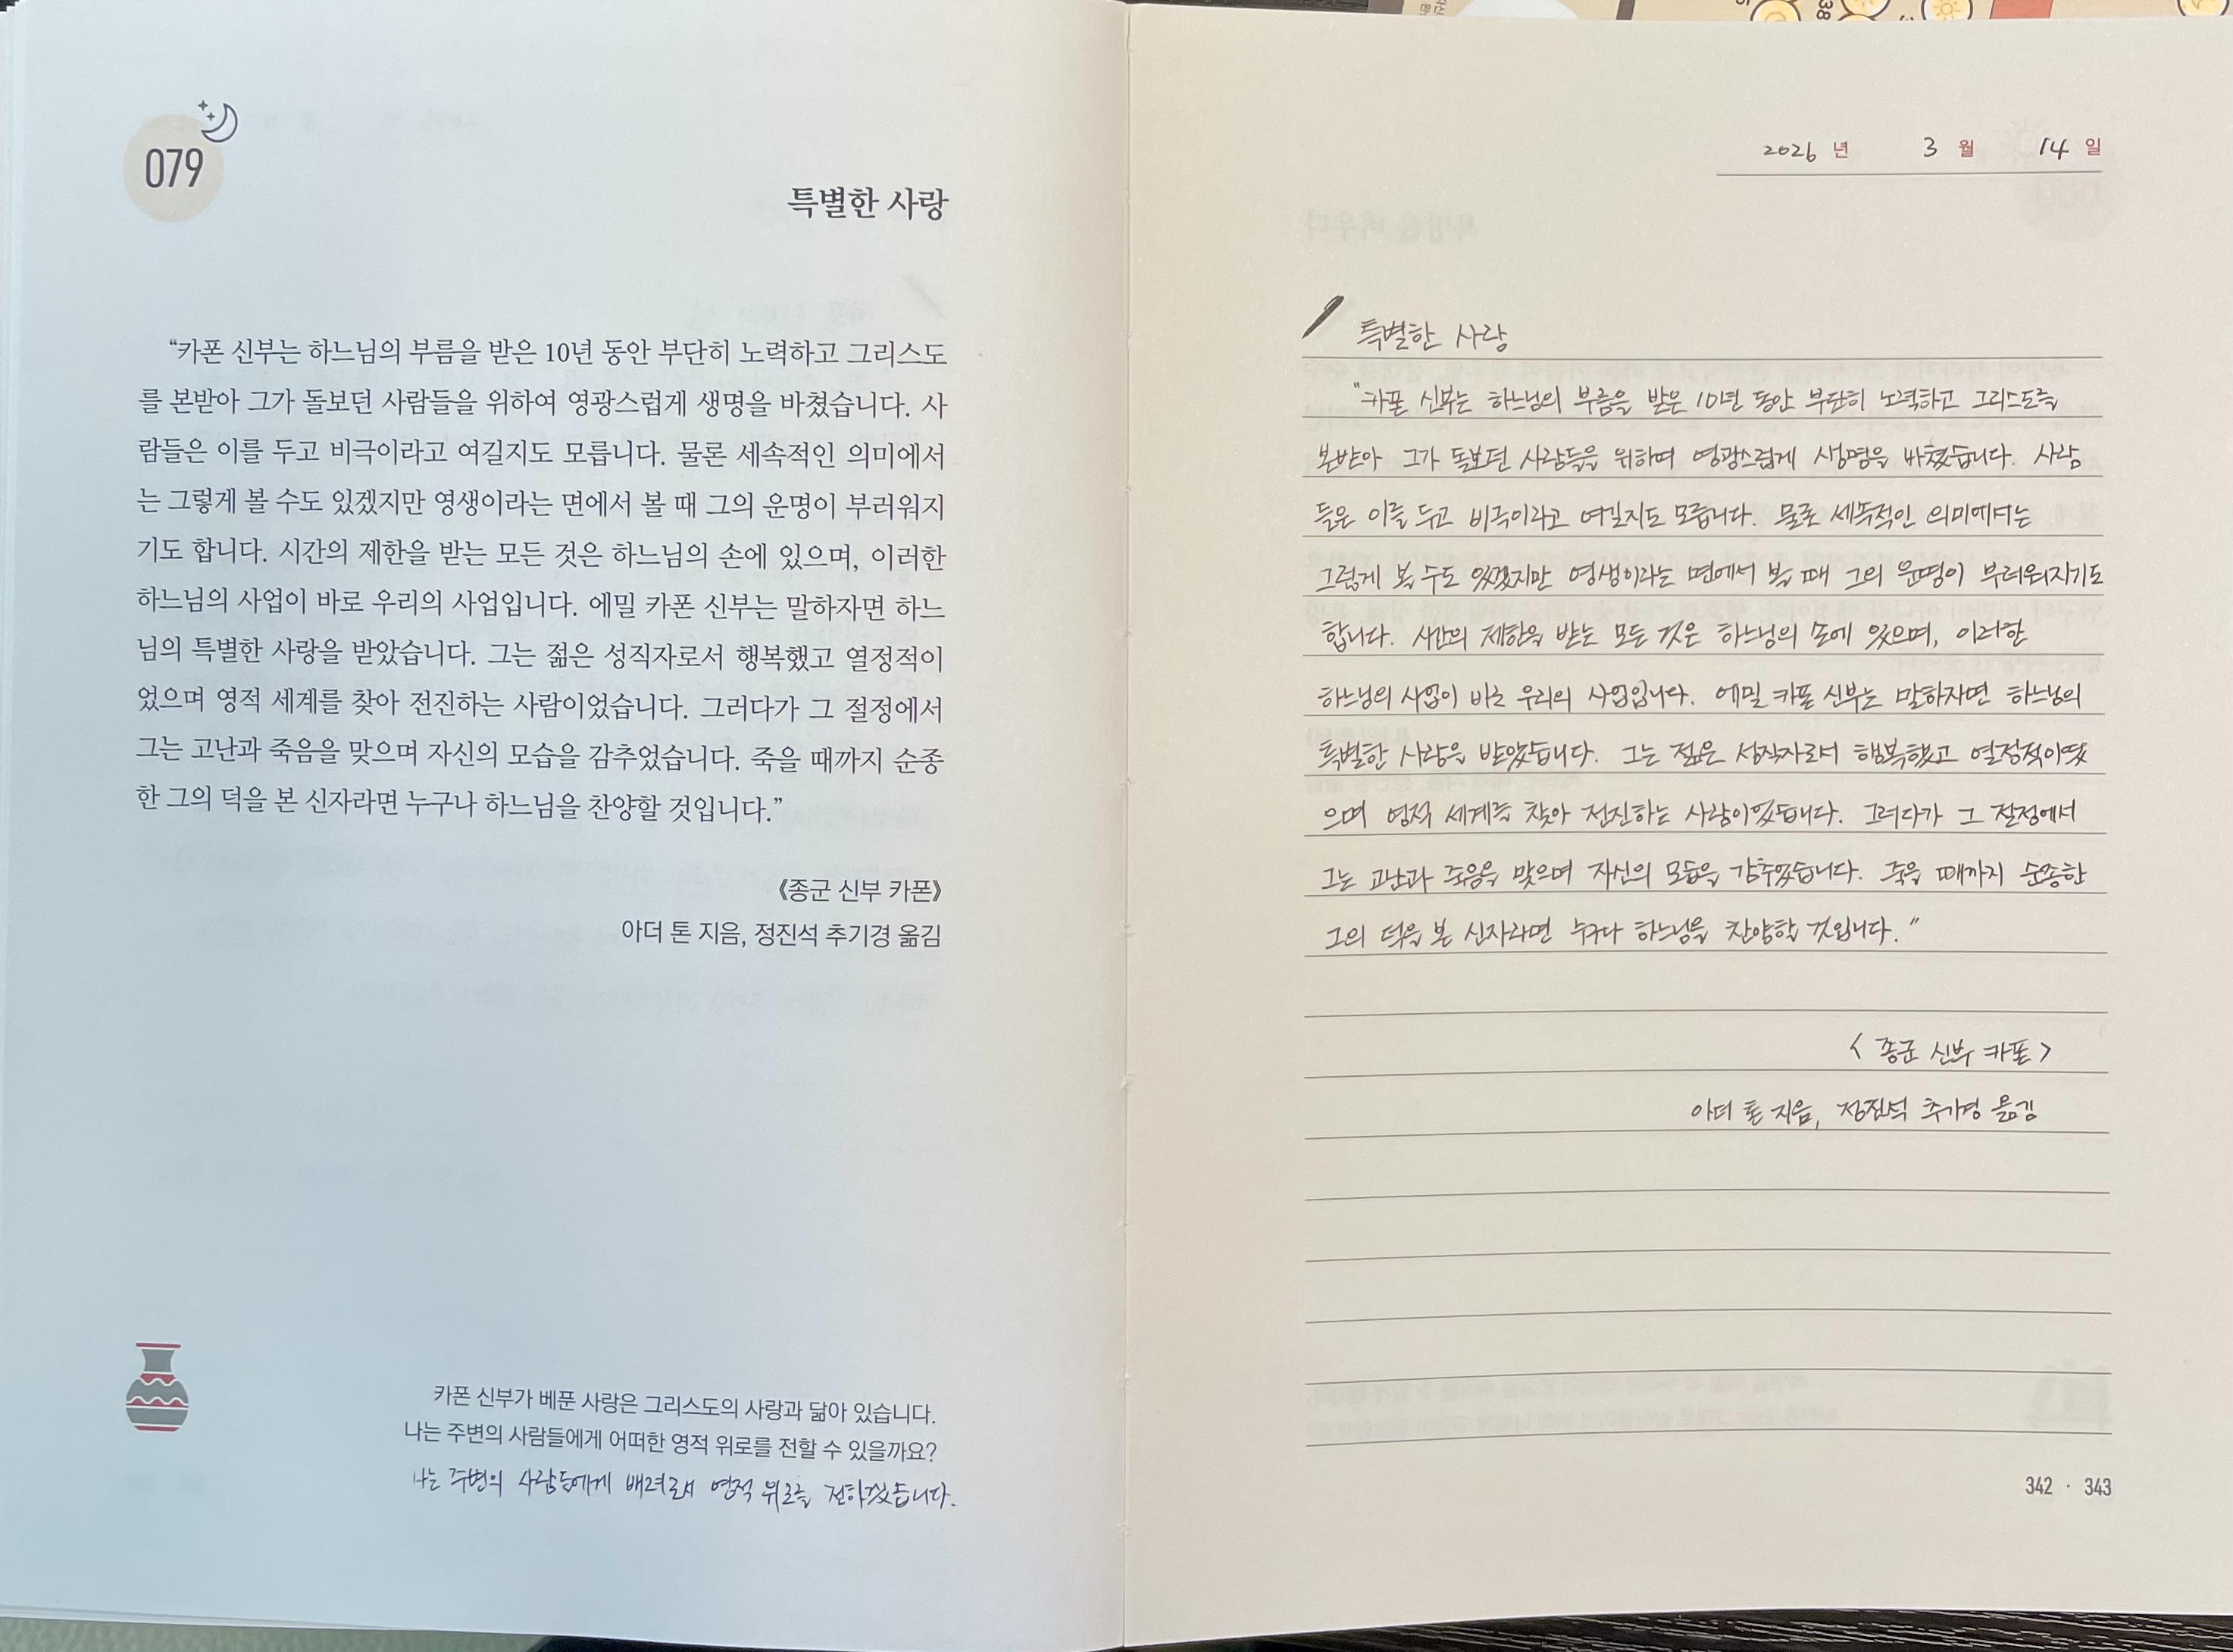 079
특별한 사랑
“카폰 신부는 하느님의 부름을 받은 10년 동안 부단히 노력하고 그리스도
를 본받아 그가 돌보던 사람들을 위하여 영광스럽게 생명을 바쳤습니다. 사
람들은 이를 두고 비극이라고 여길지도 모릅니다. 물론 세속적인 의미에서
는 그렇게 볼 수도 있겠지만 영생이라는 면에서 볼 때 그의 운명이 부러워지
기도 합니다. 시간의 제한을 받는 모든 것은 하느님의 손에 있으며, 이러한
하느님의 사업이 바로 우리의 사업입니다. 에밀 카폰 신부는 말하자면 하느
님의 특별한 사랑을 받았습니다. 그는 젊은 성직자로서 행복했고 열정적이
었으며 영적 세계를 찾아 전진하는 사람이었습니다. 그러다가 그 절정에서
그는 고난과 죽음을 맞으며 자신의 모습을 감추었습니다. 죽을 때까지 순종
한 그의 덕을 본 신자라면 누구나 하느님을 찬양할 것입니다.”
《종군 신부 카폰》
아더 톤 지음, 정진석 추기경 옮김
카폰 신부가 베푼 사랑은 그리스도의 사랑과 닮아 있습니다.
나는 주변의 사람들에게 어떠한 영적 위로를 전할 수 있을까요?
나는 주변의 사람들에게 배려로써 영적 위로를 전하겠습니다.
2026 년 3 월 14 일
특별한 사랑
“카폰 신부는 하느님의 부름을 받은 10년 동안 부단히 노력하고 그리스도를
본받아 그가 돌보던 사람들을 위하여 영광스럽게 생명을 바쳤습니다. 사람
들은 이를 두고 비극이라고 여길지도 모릅니다. 물론 세속적인 의미에서는
그렇게 볼 수도 있겠지만 영생이라는 면에서 볼 때 그의 운명이 부러워지기도
합니다. 시간의 제한을 받는 모든 것은 하느님의 손에 있으며, 이러한
하느님의 사업이 바로 우리의 사업입니다. 에밀 카폰 신부는 말하자면 하느님의
특별한 사랑을 받았습니다. 그는 젊은 성직자로서 행복했고 열정적이었
으며 영적 세계를 찾아 전진하는 사람이었습니다. 그러다가 그 절정에서
그는 고난과 죽음을 맞으며 자신의 모습을 감추었습니다. 죽을 때까지 순종한
그의 덕을 본 신자라면 누구나 하느님을 찬양할 것입니다.”
< 종군 신부 카폰 >
아더 톤 지음, 정진석 추기경 옮김
342 · 343